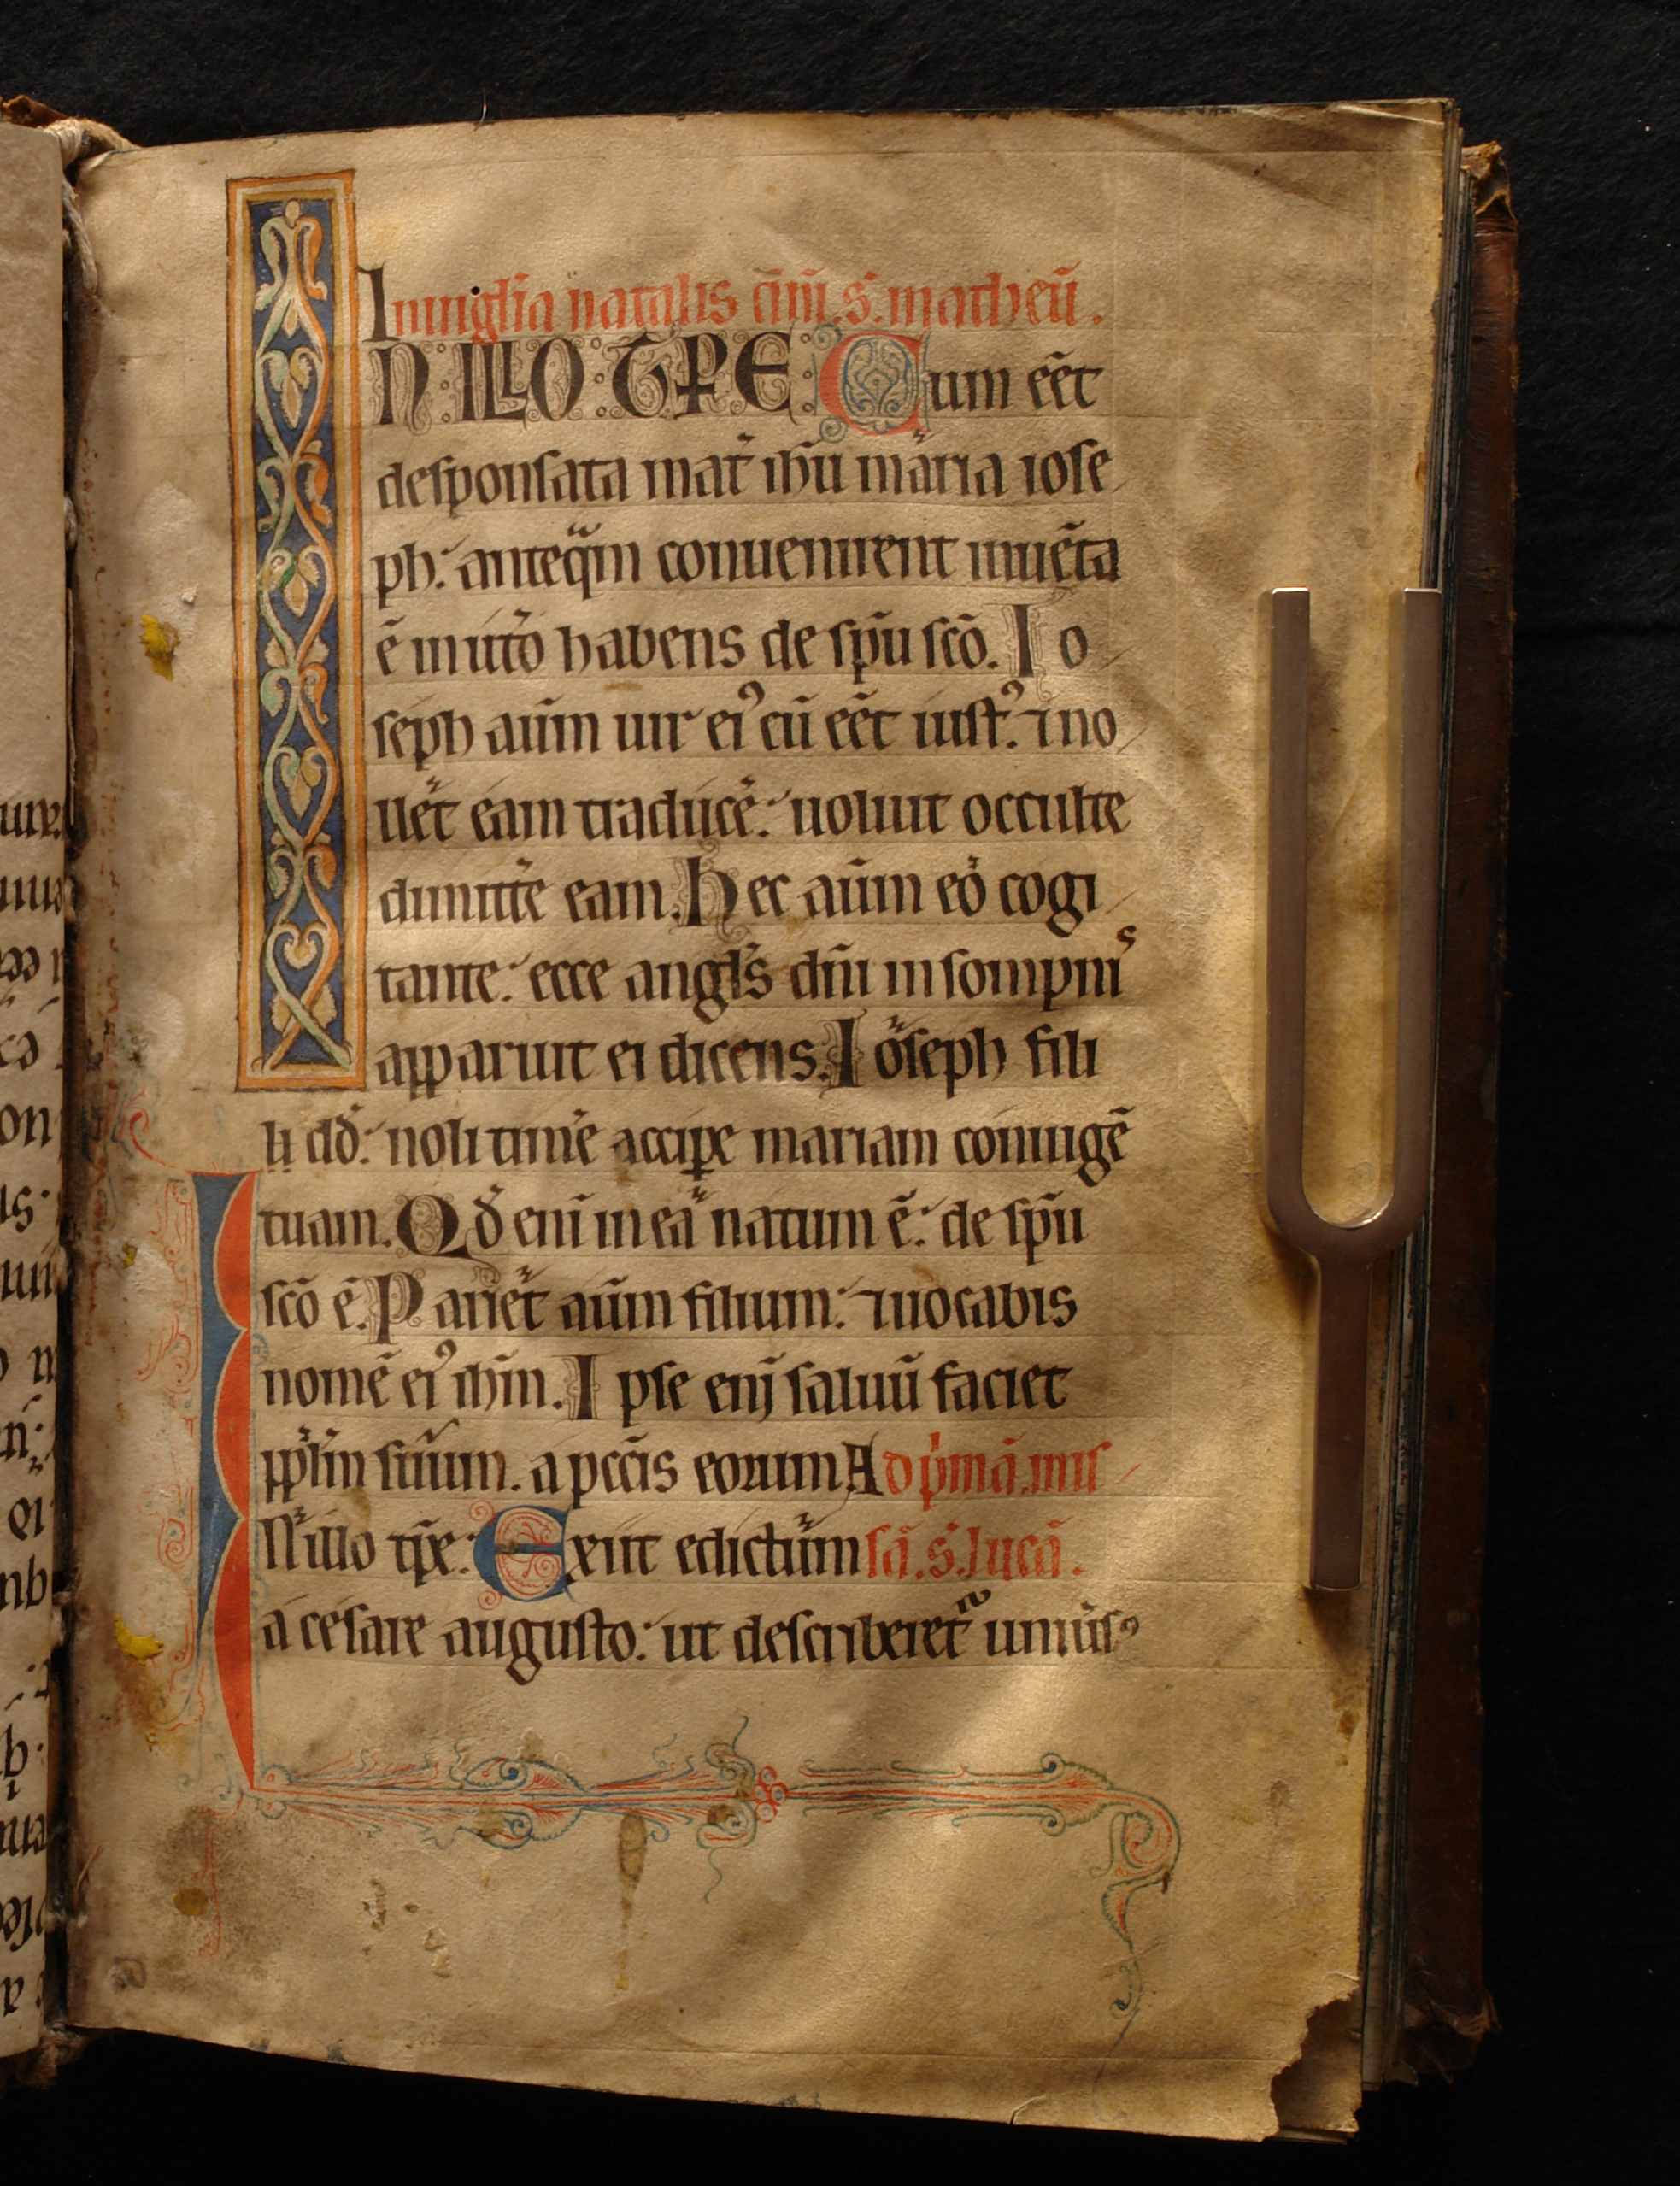 In uigl̄ia natalis dn̄i. s̄. matheū.
N ILLO T̄PE Cum eēt
desponsata mat̄ ih̄u maria iose
ph. anteq̄m conuenirent inuēta
ē in ut̄o habens de sp̄u sc̄o. Io
seph aūm uir ei᾽ cū eēt iust᾽. ⁊ no
llēt eam traducē. uoluit occulte
dimitt̄e eam. Hec aūm eō cogi
tante. ecce angl̄s dn̄i in sompnis
apparuit ei dicens. Ioseph fili
ii dd̄. noli tim̄e accipe mariam coniugē
tuam. Qd̄ enī in ea natum ē. de sp̄u
sc̄o ē. Pariet aūm filium. ⁊ uocabis
nomē ei᾽ ih̄m. Ipse enī saluū faciet
ppl̄m suum. a pcc̄is eorum Ad p̄mā mis
N illo tp̄e. Exiit edictum sā. s̄. lucā.
a cesare augusto. ut describeret᷑ uniu̇s᾽